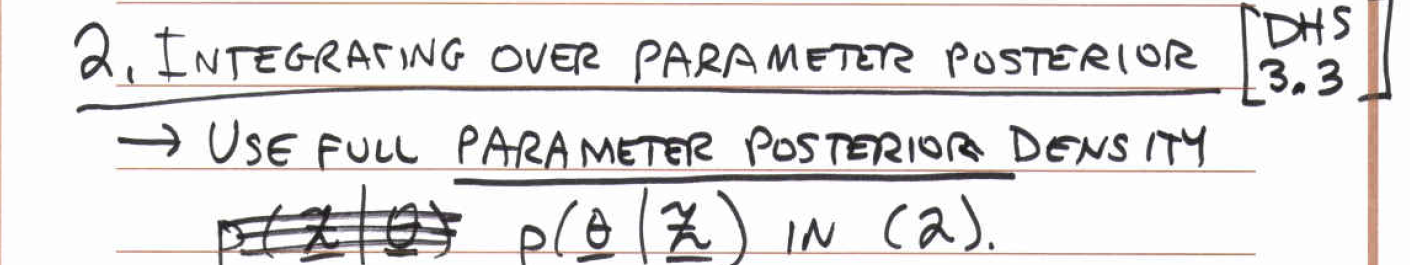 2. INTEGRATING OVER PARAMETER POSTERIOR [DHS 3.3]
→ USE FULL PARAMETER POSTERIOR DENSITY
p(θ|Z) IN (2).